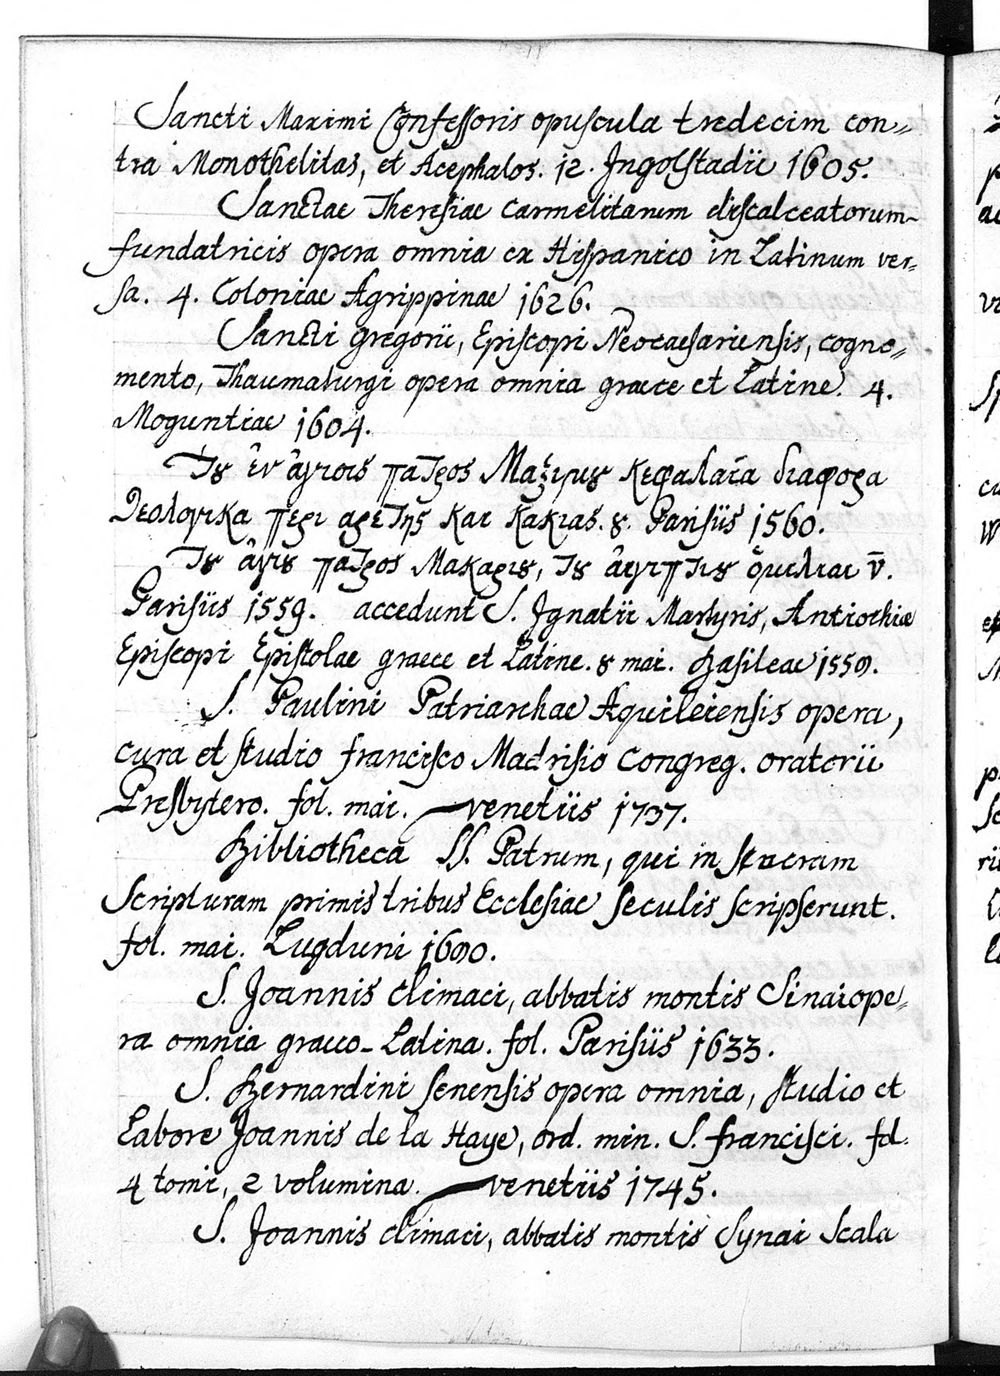 Sancti Maximi Confessoris opuscula tredecim con„
tra Monothelitas, et Acephalos. 12. Ingolstadii 1605.
Sanctae Theresiae Carmelitarum discalceatorum
fundatricis opera omnia ex Hispanico in Latinum ver„
sa. 4. Coloniae Agrippinae 1626.
Sancti Gregorii, Episcopi Neocaesariensis, cogno„
mento, Thaumaturgi opera omnia graece et Latine. 4.
Moguntiae 1604.
Τȣ ἐν ἁγιοις πατρος Μαξιμȣ κεφαλαῖα διαφορα
Θεολογικα περι αρετης και κακιας. 8. Parisiis 1560.
Τȣ ἁγιȣ πατρος Μακαριȣ, τȣ ἀιγιπτιȣ ὁμιλιαι ν̅.
Parisiis 1559. accedunt S. Ignatii Martyris, Antiochiae
Episcopi Epistolae graece et Latine. 8 mai. Basileae 1559.
S. Paulini Patriarchae Aquileiensis opera,
cura et studio Francisco Madrisio Congreg. oratorii
Presbytero. fol. mai. venetiis 1737.
Bibliotheca SS. Patrum, qui in sacram
Scripturam primis tribus Ecclesiae seculis scripserunt.
fol. mai. Lugduni 1690.
S. Joannis Climaci, abbatis montis Sinai ope„
ra omnia graeco-Latina. fol. Parisiis 1633.
S. Bernardini senensis opera omnia, studio et
Labore Joannis de la Haye, ord. min. S. Francisci. fol.
4 tomi, 2 volumina. venetiis 1745.
S. Joannis Climaci, abbatis montis Synai Scala